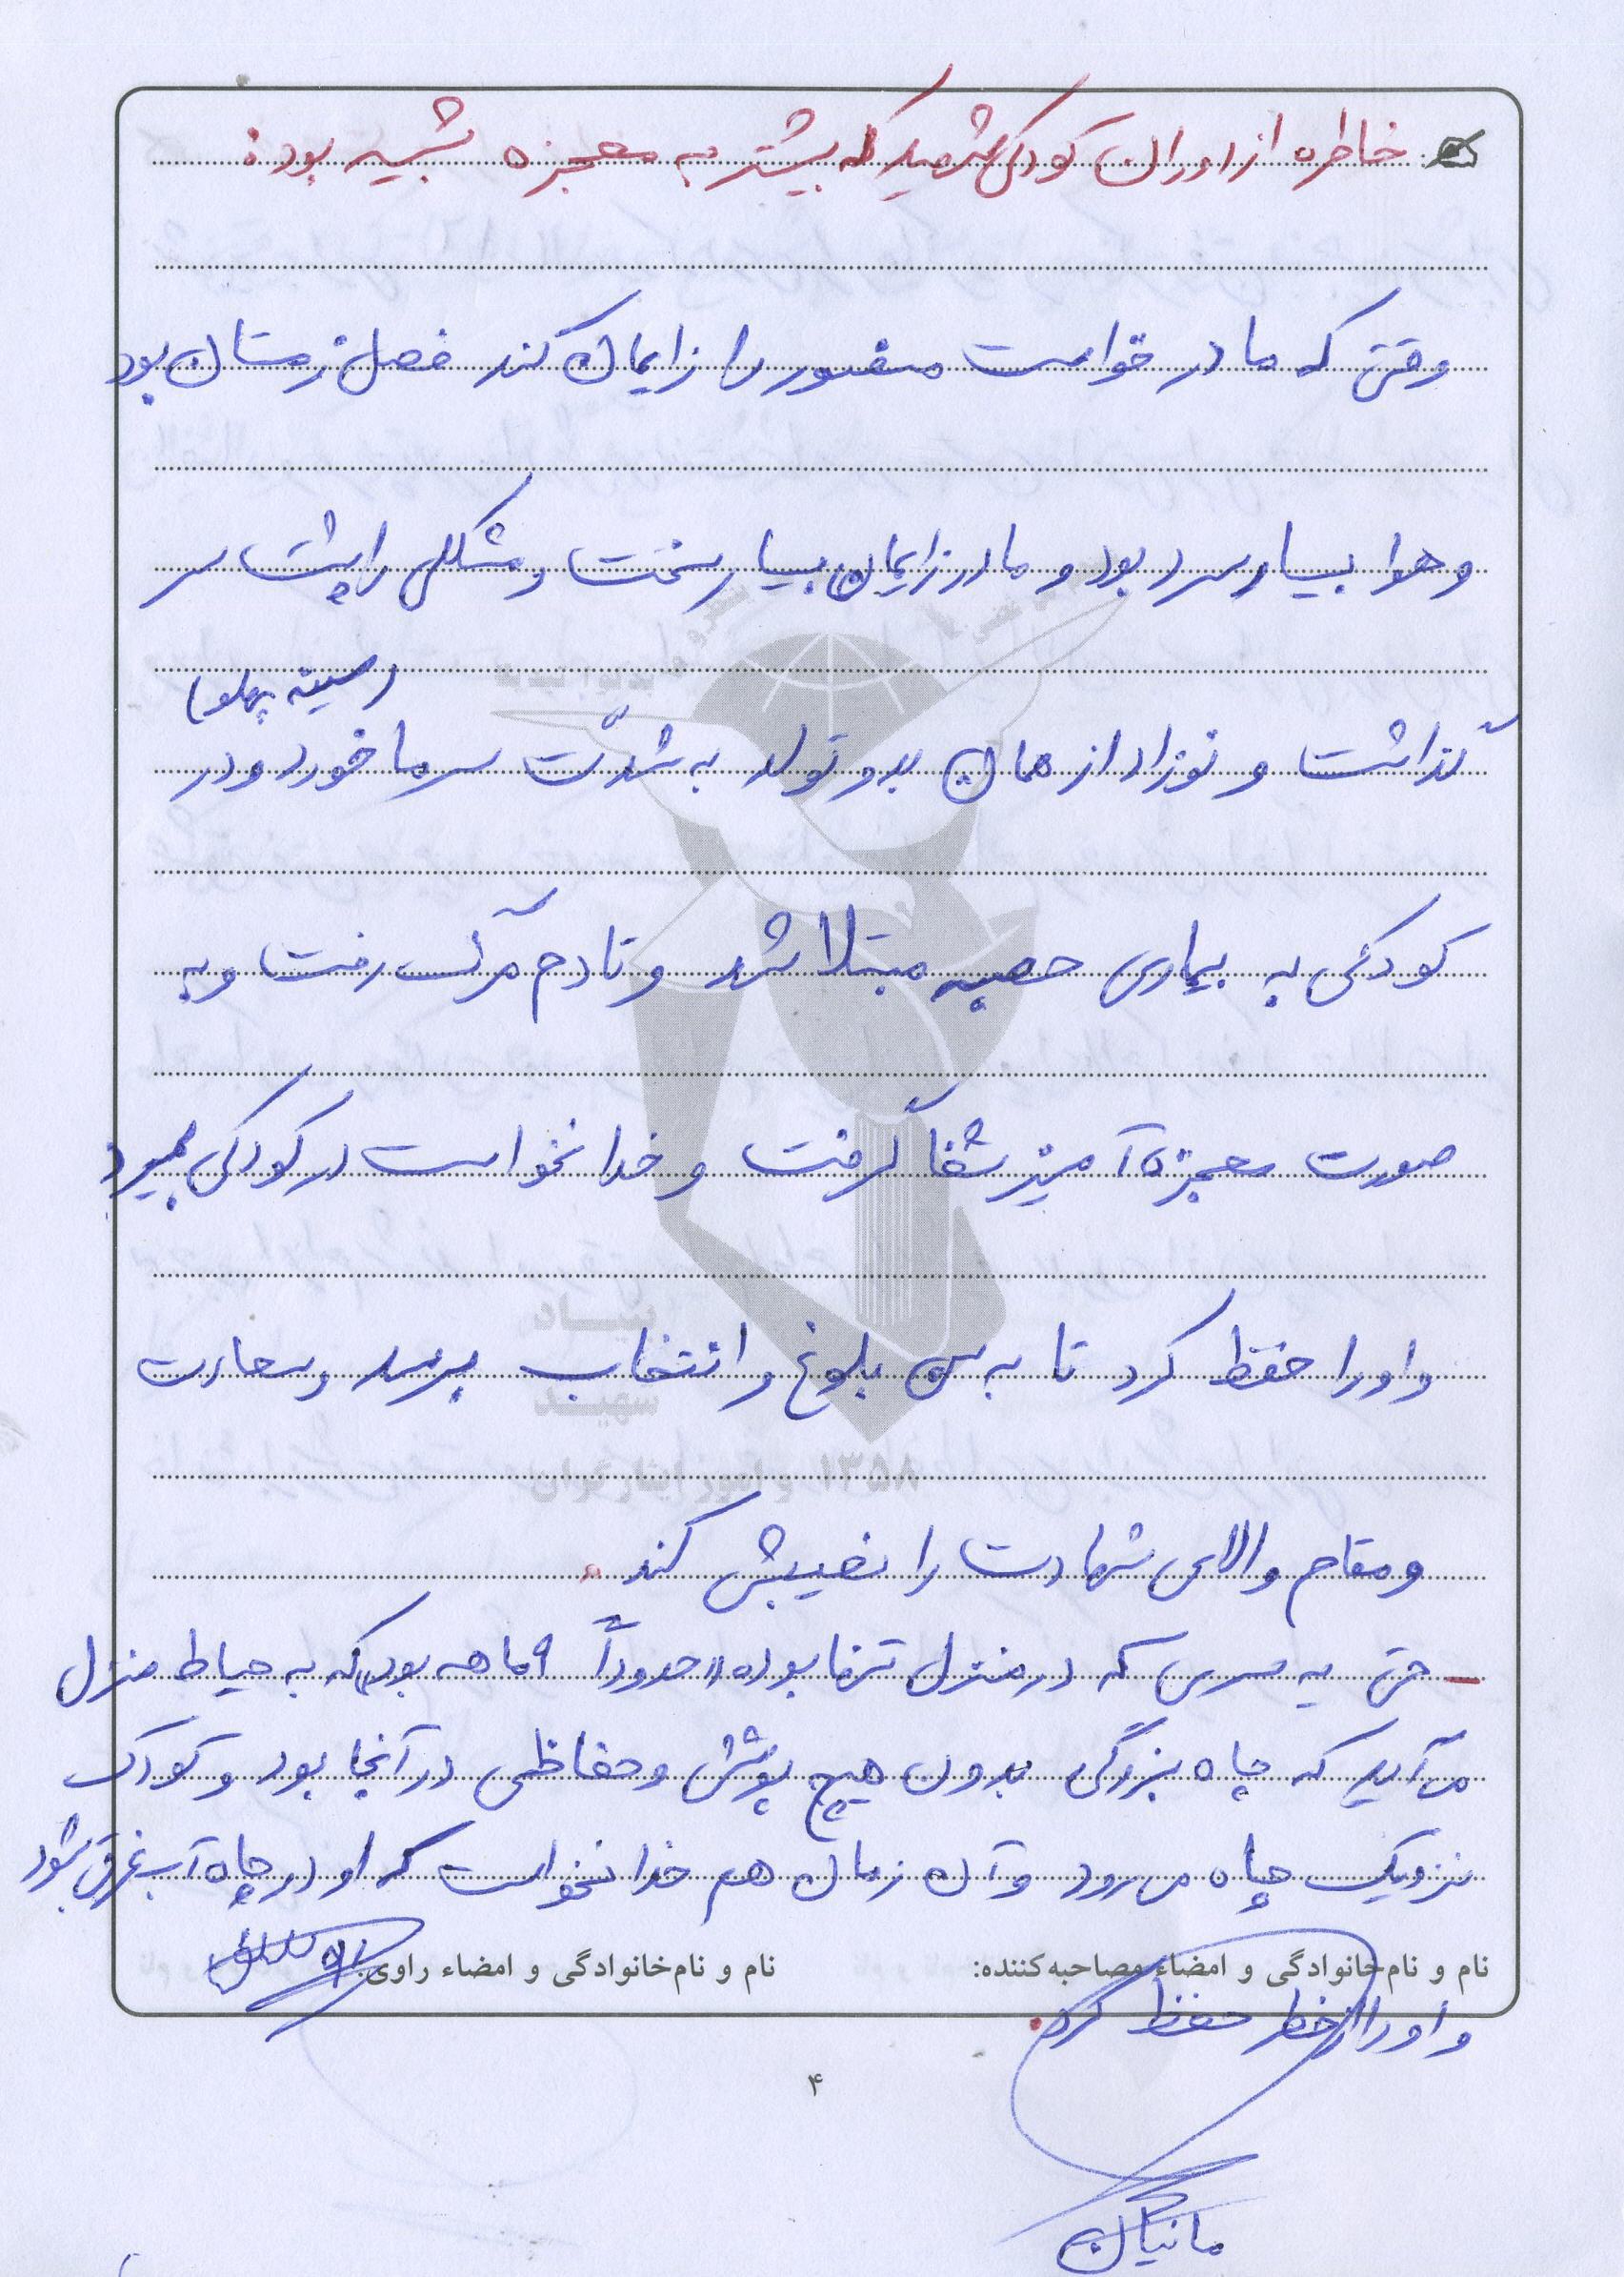 خاطره از دوران کودکی شهید که بیشتر به معجزه شبیه بود:
وقتی که مادر خواست منصور را زایمان کند فصل زمستان بود
و هوا بسیار سرد بود و مادر زایمان بسیار سخت و مشکلی را پشت سر
(سینه پهلو)
گذاشت و نوزاد از همان بدو تولد به شدّت سرما خورد و در
کودکی به بیماری حصبه مبتلا شد و تا دم مرگ رفت و به
صورت معجزه آمیز شفا گرفت و خدا نخواست در کودکی بمیرد
و او را حفظ کرد تا به سن بلوغ و انتخاب برسد و سعادت
و مقام والای شهادت را نصیبش کند.
- حتی یه سری که در منزل تنها بوده «حدوداً ۹ ماهه بود» که به حیاط منزل
می آید که چاه بزرگی بدون هیچ پوشش و حفاظی در آنجا بود و کودک
نزدیک چاه می رود و آن زمان هم خدا نخواست که او در چاه آب غرق شود
نام و نام‌خانوادگی و امضاء مصاحبه‌کننده:
نام و نام‌خانوادگی و امضاء راوی:
و او را از خطر حفظ کرد.
۴
مانیان
بنیاد
شهید
و امور ایثارگران ۱۳۵۸